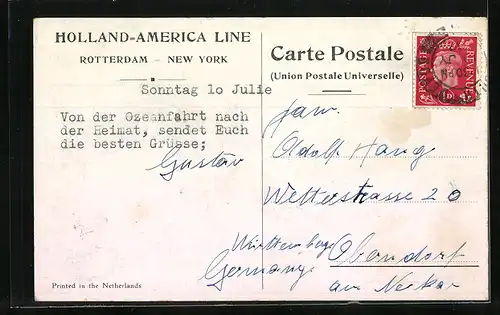 HOLLAND-AMERICA LINE
ROTTERDAM – NEW YORK
Sonntag 1o Julie
Von der Ozeanfahrt nach
der Heimat, sendet Euch
die besten Grüsse;
Gustav
Printed in the Netherlands
Carte Postale
(Union Postale Universelle)
POSTAGE REVENUE
Fam.
Adolf Haug
Wettestrasse 20
Württemberg Oberndorf
Germany am Neckar